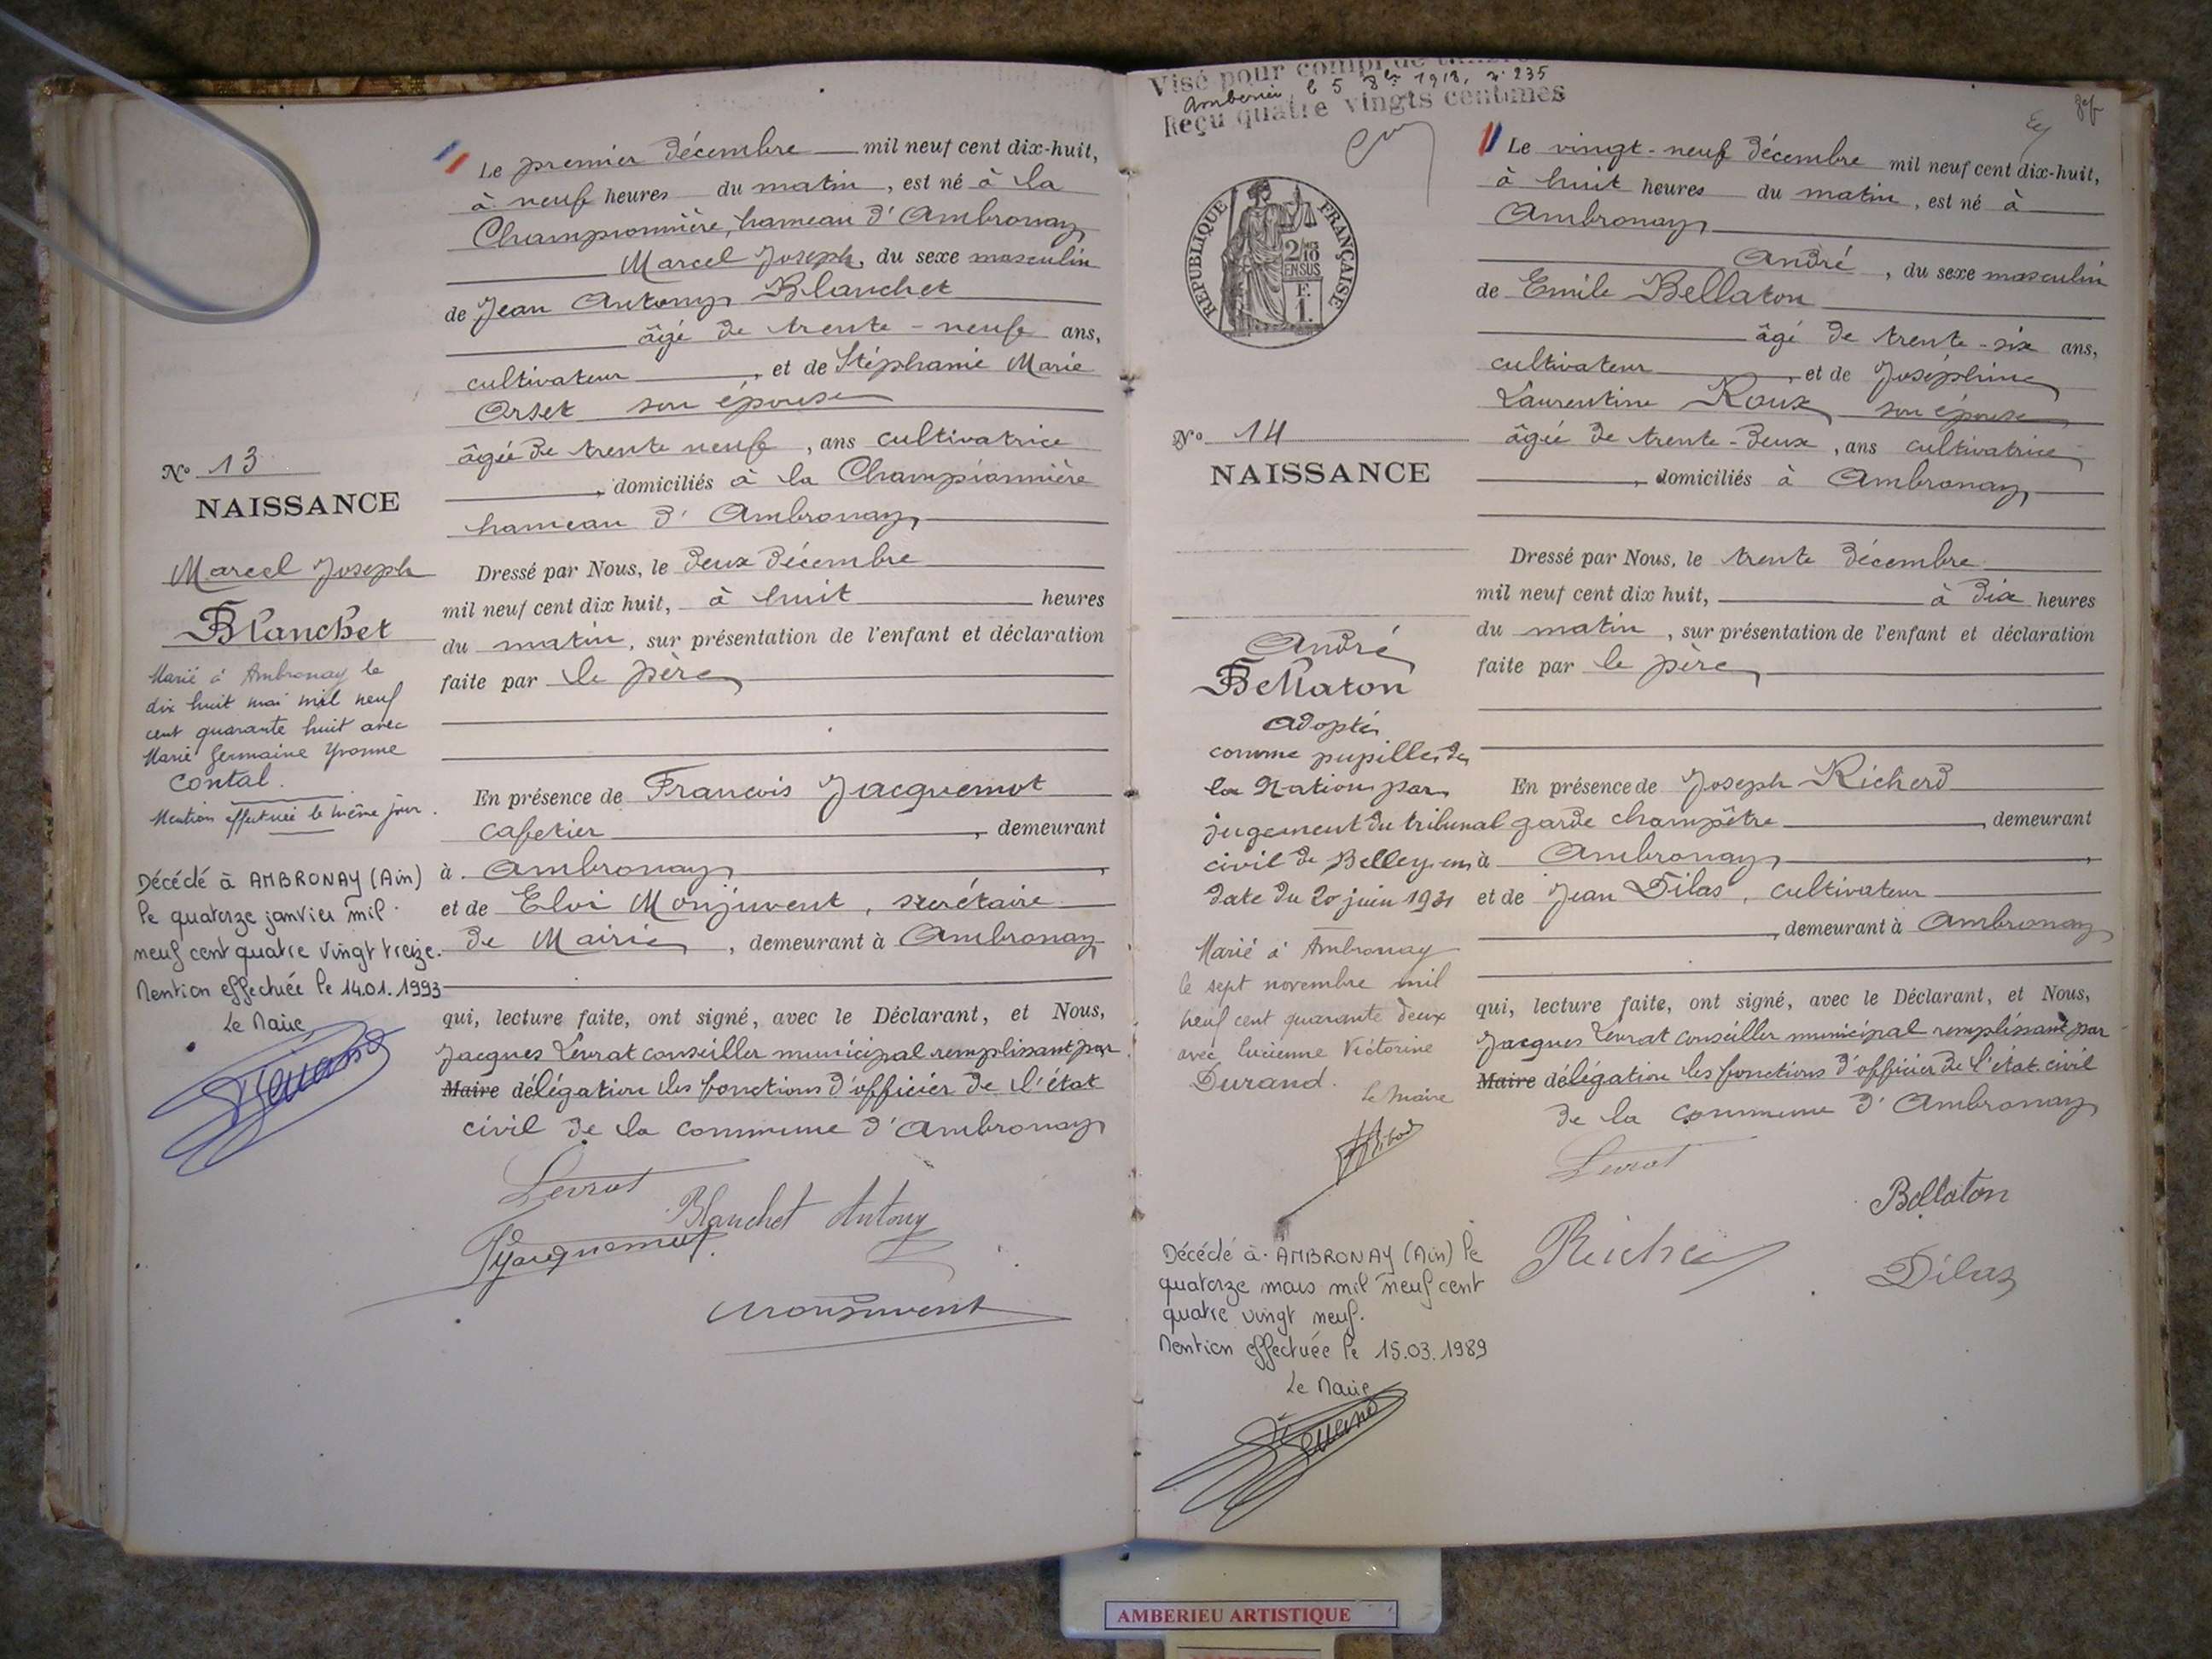 Le premier décembre mil neuf cent dix-huit,
à neuf heures du matin, est né à la
Championnière, hameau d'Ambronay
Marcel Joseph, du sexe masculin
de Jean Antony Blanchet
âgé de trente-neuf ans,
cultivateur, et de Stéphanie Marie
Orset son épouse
âgée de trente neuf, ans cultivatrice
, domiciliés à la Championnière
hameau d'Ambronay
Dressé par Nous, le deux décembre
mil neuf cent dix huit, à huit heures
du matin, sur présentation de l'enfant et déclaration
faite par le père
En présence de François Jacquemot
cafetier, demeurant
à Ambronay
et de Eloi Monjuvent, secrétaire
de Mairie, demeurant à Ambronay
qui, lecture faite, ont signé, avec le Déclarant, et Nous,
Jacques Levrat conseiller municipal remplissant par
Maire délégation les fonctions d'officier de l'état
civil de la commune d'Ambronay
Levrat
Blanchet Antony
Jacquemot
Monjuvent
No 13
NAISSANCE
Marcel Joseph
Blanchet
Marié à Ambronay le
dix huit mai mil neuf
cent quarante huit avec
Marie Germaine Yvonne
Contal.
Mention effectuée le même jour.
Décédé à AMBRONAY (Ain)
le quatorze janvier mil
neuf cent quatre vingt treize.
Mention effectuée le 14.01.1993
Le Maire
Visé pour
Amberieu, le 5 1918, n° 235
Reçu quatre vingts centimes
RÉPUBLIQUE FRANÇAISE
2/10
EN SUS
F.
1.
No 14
NAISSANCE
André
Bellaton
Adopté
comme pupille de
la Nation par
jugement du tribunal
civil de Belley en
date du 20 juin 1931
Marié à Ambronay
le sept novembre mil
neuf cent quarante deux
avec Lucienne Victorine
Durand.
Le Maire
Décédé à AMBRONAY (Ain) le
quatorze mars mil neuf cent
quatre vingt neuf.
Mention effectuée le 15.03.1989
Le Maire
Le vingt-neuf décembre mil neuf cent dix-huit,
à huit heures du matin, est né à
Ambronay
André, du sexe masculin
de Emile Bellaton
âgé de trente-six ans,
cultivateur, et de Joséphine
Laurentine Roux son épouse
âgée de trente-deux, ans cultivatrice
, domiciliés à Ambronay
Dressé par Nous, le trente décembre
mil neuf cent dix huit, à dix heures
du matin, sur présentation de l'enfant et déclaration
faite par le père
En présence de Joseph Richerd
garde champêtre, demeurant
à Ambronay,
et de Jean Dilas, cultivateur
, demeurant à Ambronay
qui, lecture faite, ont signé, avec le Déclarant, et Nous,
Jacques Levrat conseiller municipal remplissant par
Maire délégation les fonctions d'officier de l'état civil
de la commune d'Ambronay
Levrat
Bellaton
Dilas
AMBERIEU ARTISTIQUE